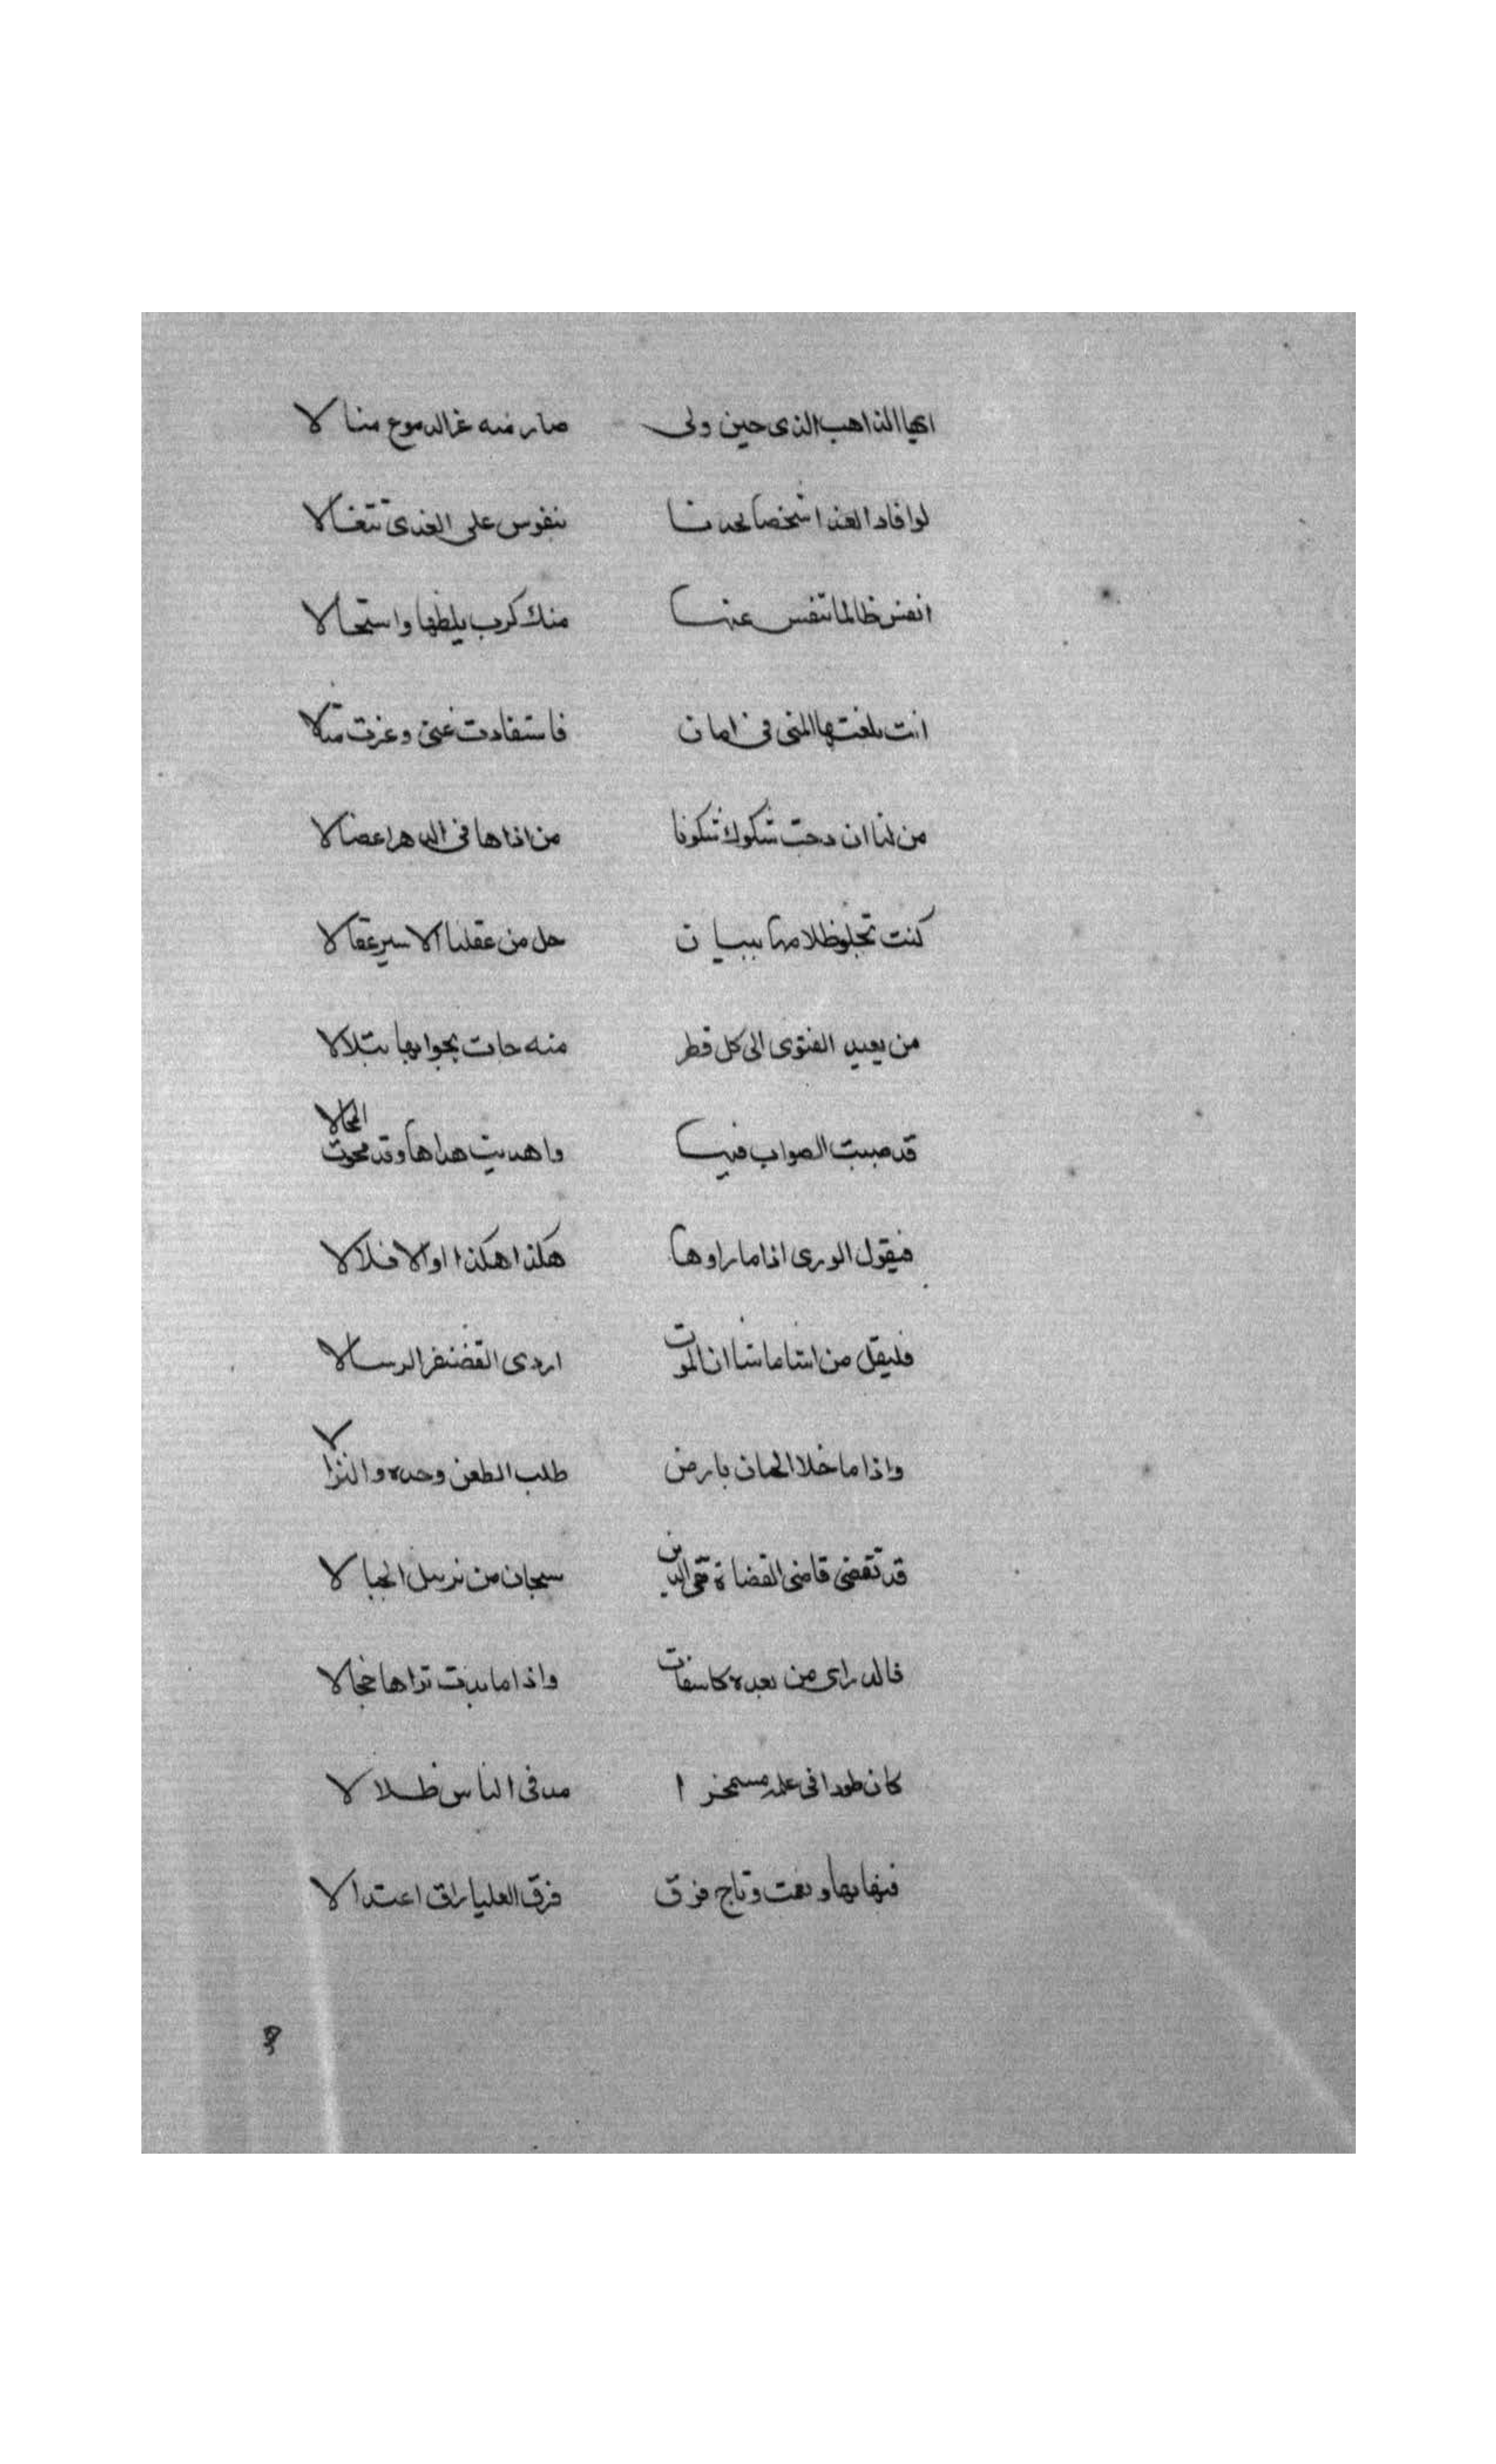 ايها الذاهب الذى حين ولى صار منه غز الدموع منالا
لوافاد الفدا شخصا لجدنا بنفوس على الفدى تتغالا
انفس طالما تنفس عنها منك كرب يلظها واستحالا
انت بلغتها المنى فى امان فاستفادت غنى وعزت منالا
من لنا ان دجت شكوك شكونا من اذاها فى الدهر اعضالا
كنت تجلو ظلامها ببيان حل من عقلنا الاسير عقالا
من يعيد الفتوى الى كل قطر منه جات بجوابها يتلالا
قد صببت الصواب فيها واهديت هداها وقد محوت المحالا
فيقول الورى اذا ما راوها هكذا هكذا اوالا فلالا
فليقل من اشا ما شا ان الموت اردى الغضنفر الرسالا
واذا ما خلا الجبان بارض طلب الطعن وحده والنزالا
قد تقضى قاضى القضاة تقى الدين سبحان من يزيل الجبالا
فالدرارى من بعده كاسفات واذا ما بدت تراها خجالا
كان طودا فى علمه مشمخرا مد فى الناس ظلالا
فرق العليا راق اعتدالا